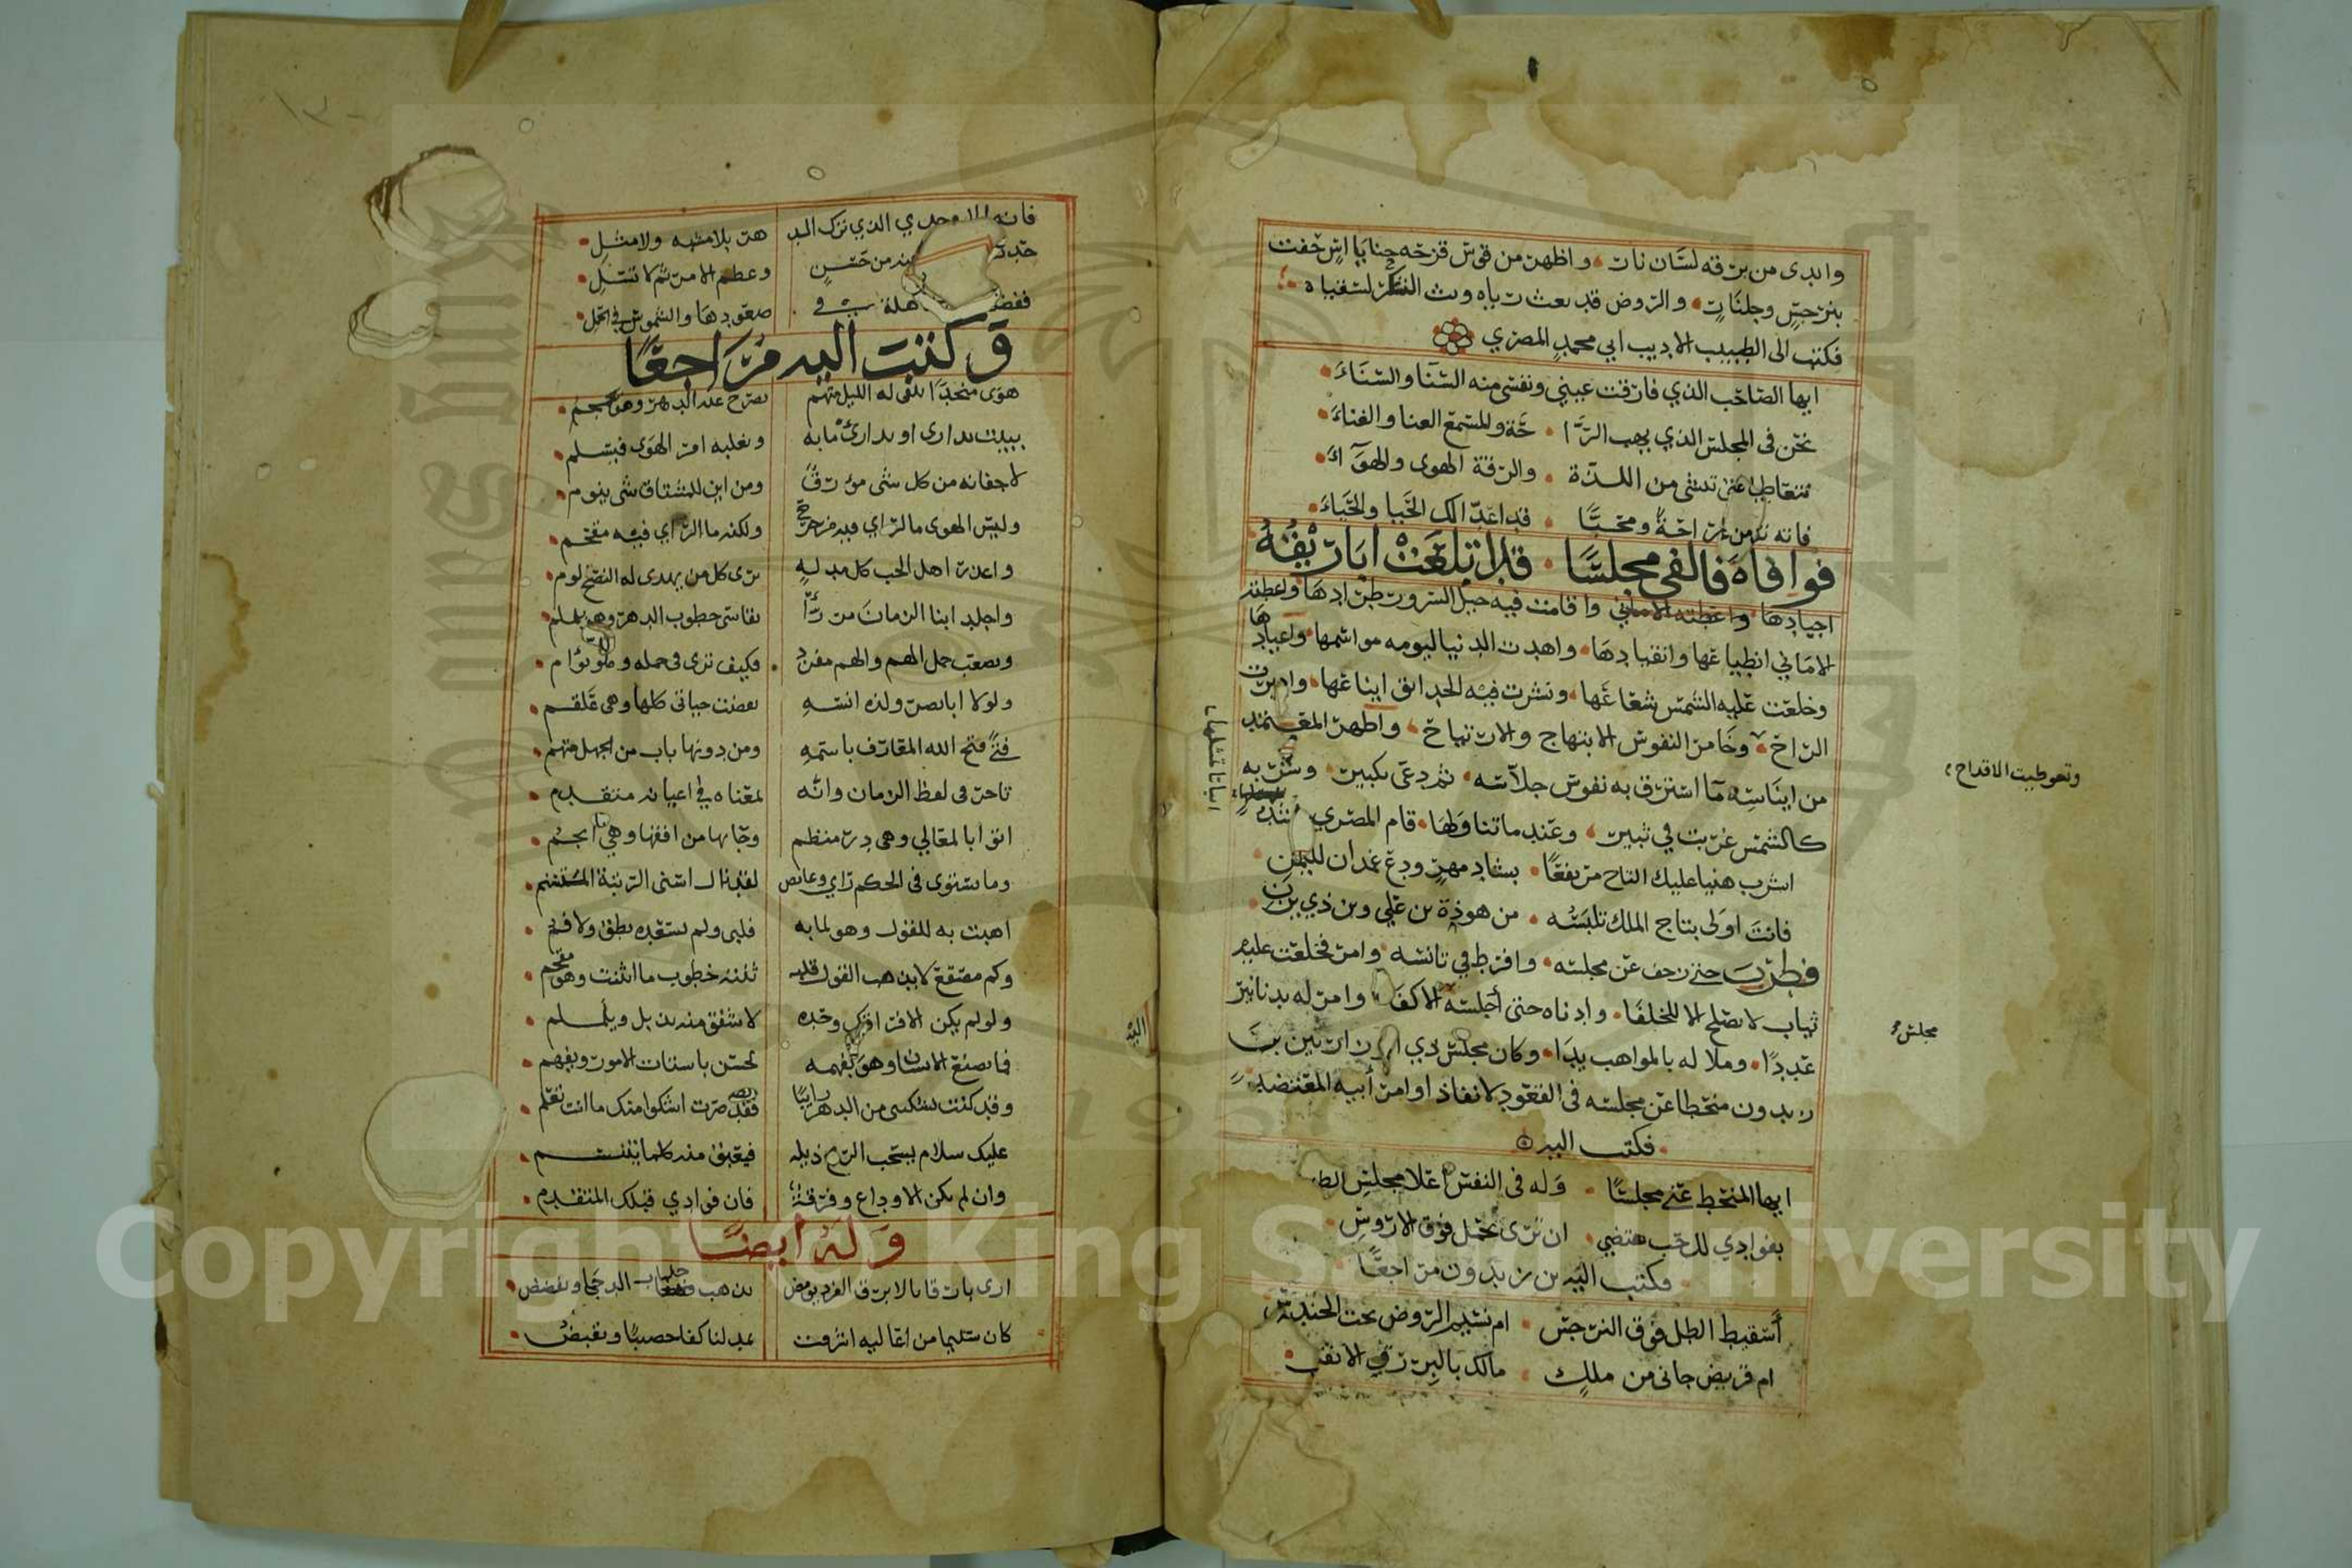 وابدى من برقه لسان نار واظهر من قوس قزحه حنايا اس حفت
بنرجس وجلنار والروض قد بعث رياه وبث الشكر لسقياه
فكتب الى الطبيب الاديب ابي محمد المصري
ايها الصاحب الذي فارقت عيني ونفسي منه السنا والسناء
نحن في المجلس الذي يهب الرا حة وللسمع الغنا والغناء
نتعاطى التي تنسي من اللذة والرقة الهوى والهواء
فاته تلف راحة ومحيا قد اعدا لك الحيا والحياء
فوافاه فالفى مجلسا قد اتلعت اباريقه
اجيادها واقامت فيه خيل السرور طرادها واعطته
الاماني انطباعها وانقيادها واهدت الدنيا ليومه مواسمها واعيادها
وخلعت عليه الشمس شعاعها ونشرت فيه الحدائق ايناعها وادبرت
الراح وخامر النفوس الابتهاج والارتياح واظهر المعتمد
من ايناسه ما استرق به نفوس جلاسه ثم دعى بكبير وشربه
كالشمس غربت في ثبير وعند ما تناولها قام المصري ينشد
اشرب هنيا عليك التاج مرتفقا بشاد مهر ودع غمدان لليمن
فانت اولى بتاج الملك تلبسه من هوذة بن علي وبن ذي يزن
فطرب حتى زحف عن مجلسه وافرط في تانسه وامر فخلعت عليه
ثياب لا تصلح الا للخلفا وادناه حتى اجلسه الاكفا وامر له بدنانير
عددا وملا له بالمواهب يدا وكان مجلس ذي الوزارتين بن
زيدون منحطا عن مجلسه في القعود لانفاذ اوامر أبيه المعتضد
فكتب اليه
ايها المنحط عني مجلسا وله في النفس اعلا مجلس
بفوادي لك حب يقتضي ان ترى تحمل فوق الاروس
فكتب اليه بن زيدون مراجعا
أسقيط الطل فوق النرجس ام نسيم الروض تحت الحندس
ام قريض جاني من ملك مالك بالبر رق الانفس
وتعوطيت الاقداح
مجلس
ابياتا تمثلها
اليه
١٣٠
فانه الاوحدي الذي ترك الد هر بلا مشبه ولا مثل
من حسن وعظم الامر ثم لا تسل
صعودها والشموس في الحمل
وكتبت اليه مراجعا
هوى منجدا يلقى له الليل متهم يصرح عنه الدهر وهو يجمجم
يبيت يداري او يدارئ ما به ويغلبه امر الهوى فيسلم
لاجفانه من كل شي مؤرق ومن اين للمشتاق شي ينوم
وليس الهوى ما الراي فيه مزحزح ولكنه ما الراي فيه مفخم
واعذر اهل الحب كل مدله يرى كل من يهدى له النصح لوم
واجلد ابنا الزمان من رأ يقاسي خطوب الدهر وهو يململ
ويصعب حمل الهم والهم مفرد وكيف ترى في حمله وهو توام
ولولا ابا نصر ولذه انسه تقضت حياتي كلها وهي علقم
فتى فتح الله المعارف باسمه ومن دونها باب من الجهل مبهم
تاخر في لفظ الزمان وانه لمعناه في اعيانه متقدم
اتوا بالمعالي وهي در منظم وجا بها من افقها وهي انجم
وما يستوى في الحكم راي وغائص لقد نال اسنى الرتبة المتسنم
اهبت به للقول وهو لما به فلبى ولم يسعده نطق ولا فم
وكم مصقع لا يذهب القول قلبه ثنته خطوب ما انثنت وهو مفحم
ولو لم يكن الا فراقك وحده لاشفق منه يذبل ويلملم
فما يصنع الانسان وهو بفهمه يحس باسباب الامور ويفهم
وقد كنت تشتكي من الدهر رائبا فقد صرت اشكوا منك ما انت تعلم
عليك سلام يسحب الريح ذيله فيعبق منه كلما يتنسم
وان لم يكن الا وداع وفرقة فان فوادي قبلك المتقدم
وله ايضا
ارى بارقا بالابرق الفرد يومض يذهب جلباب الدجا ويفضض
كان سليما من اعاليه اشرفت يمد لنا كفا خصيبا ويقبض
Copyright © King Saud University
1957